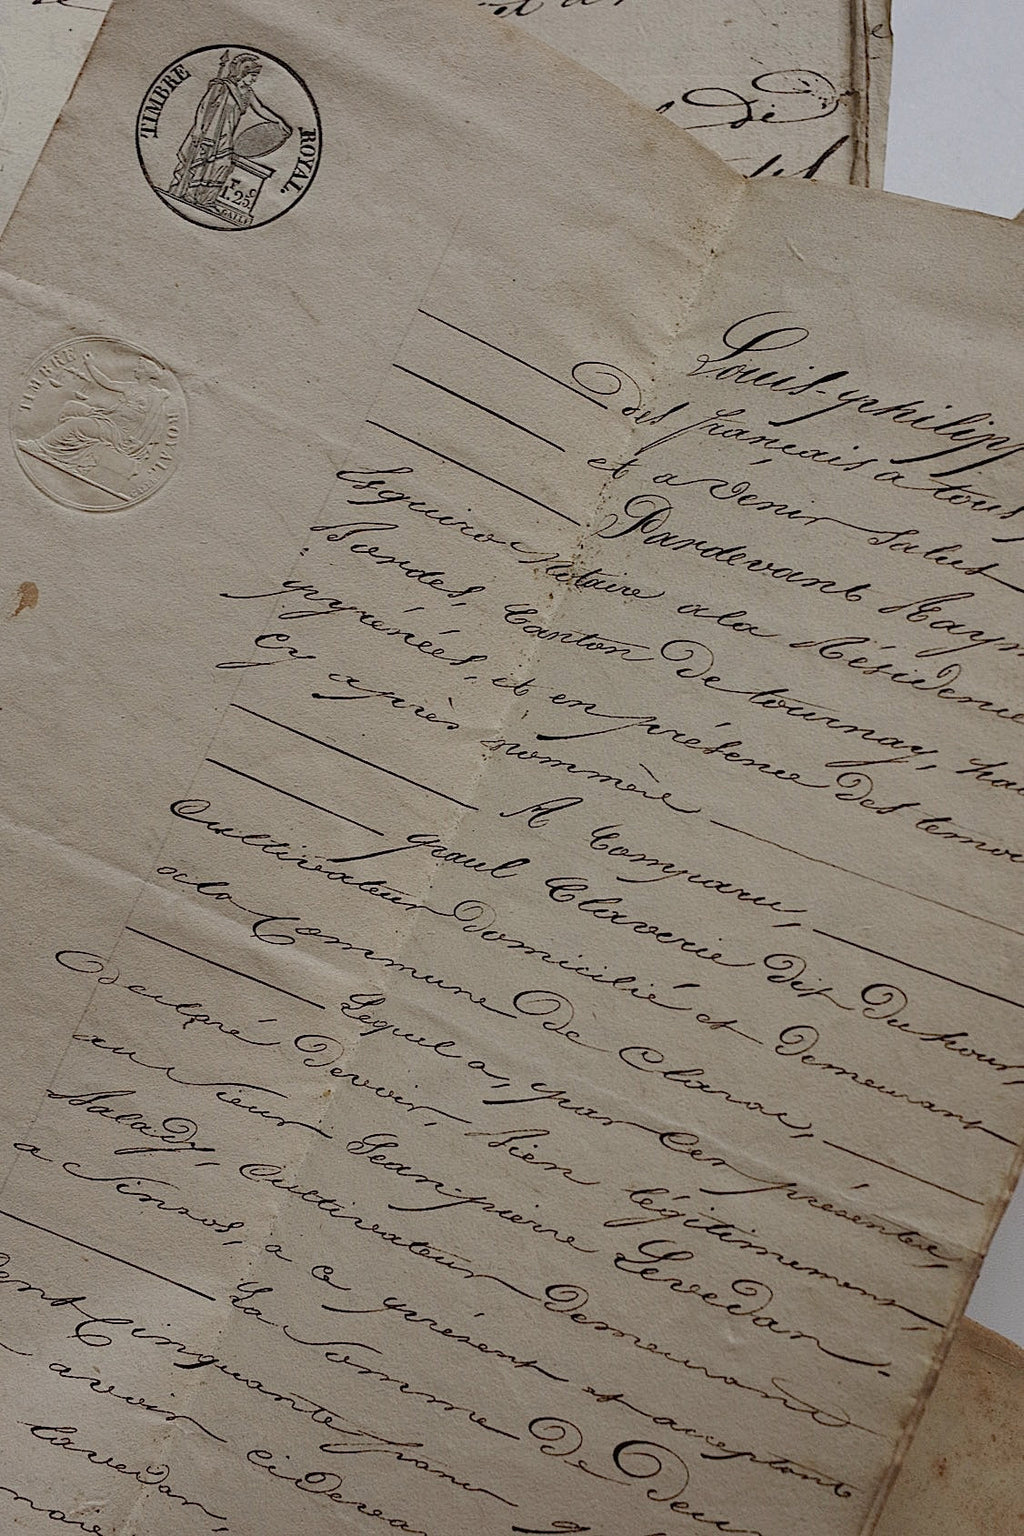 TIMBRE ROYAL.
1. 25.
TIMBRE ROYAL.
De
Louis-philipp
des français a tous
et a venir Salut
Pardevant Raym
Esquiroc Notaire a la Résidence
Bordes, Canton De tournay, hau
pyrénées, et en présence Des temoi
Cy après nommés
A Comparu,
paul Claverie Dit Du
Cultivateur Domicilié et Demeurant
a la Commune De Clarac,
Lequel a, par Ces présentes,
Declaré Devoir, bien légitimement,
au Sieur Jean-pierre Lavedan
Malady, Cultivateur Demeurant
a Sinzos, a ce présent et acceptant
La Somme De Deu
Cent Cinquante franc
avoir Cideva
Lavedan,